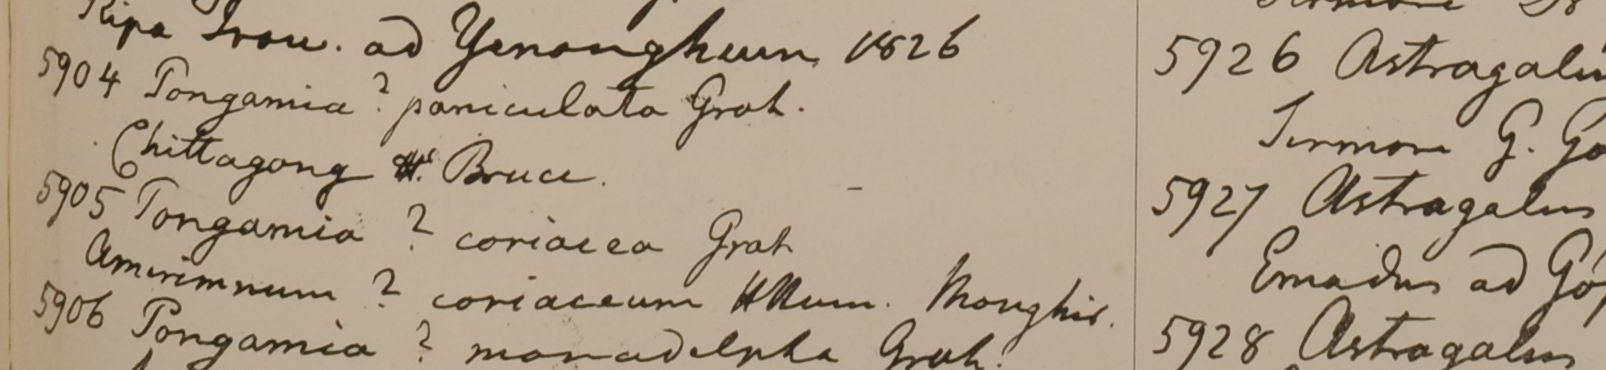 Ripa Irou. ad Yenangheum 1826
5904 Pongamia ? paniculata Grah.
Chittagong H. Bruce.
5905 Pongamia ? coriacea Grah
Amerimnum ? coriaceum HHam. Monghir.
5906 Pongamia ? monadelpha Grah.
5926 Astragalu
Sirmore G. Go
5927 Astragalus
Emadus ad Go
5928 Astragalus